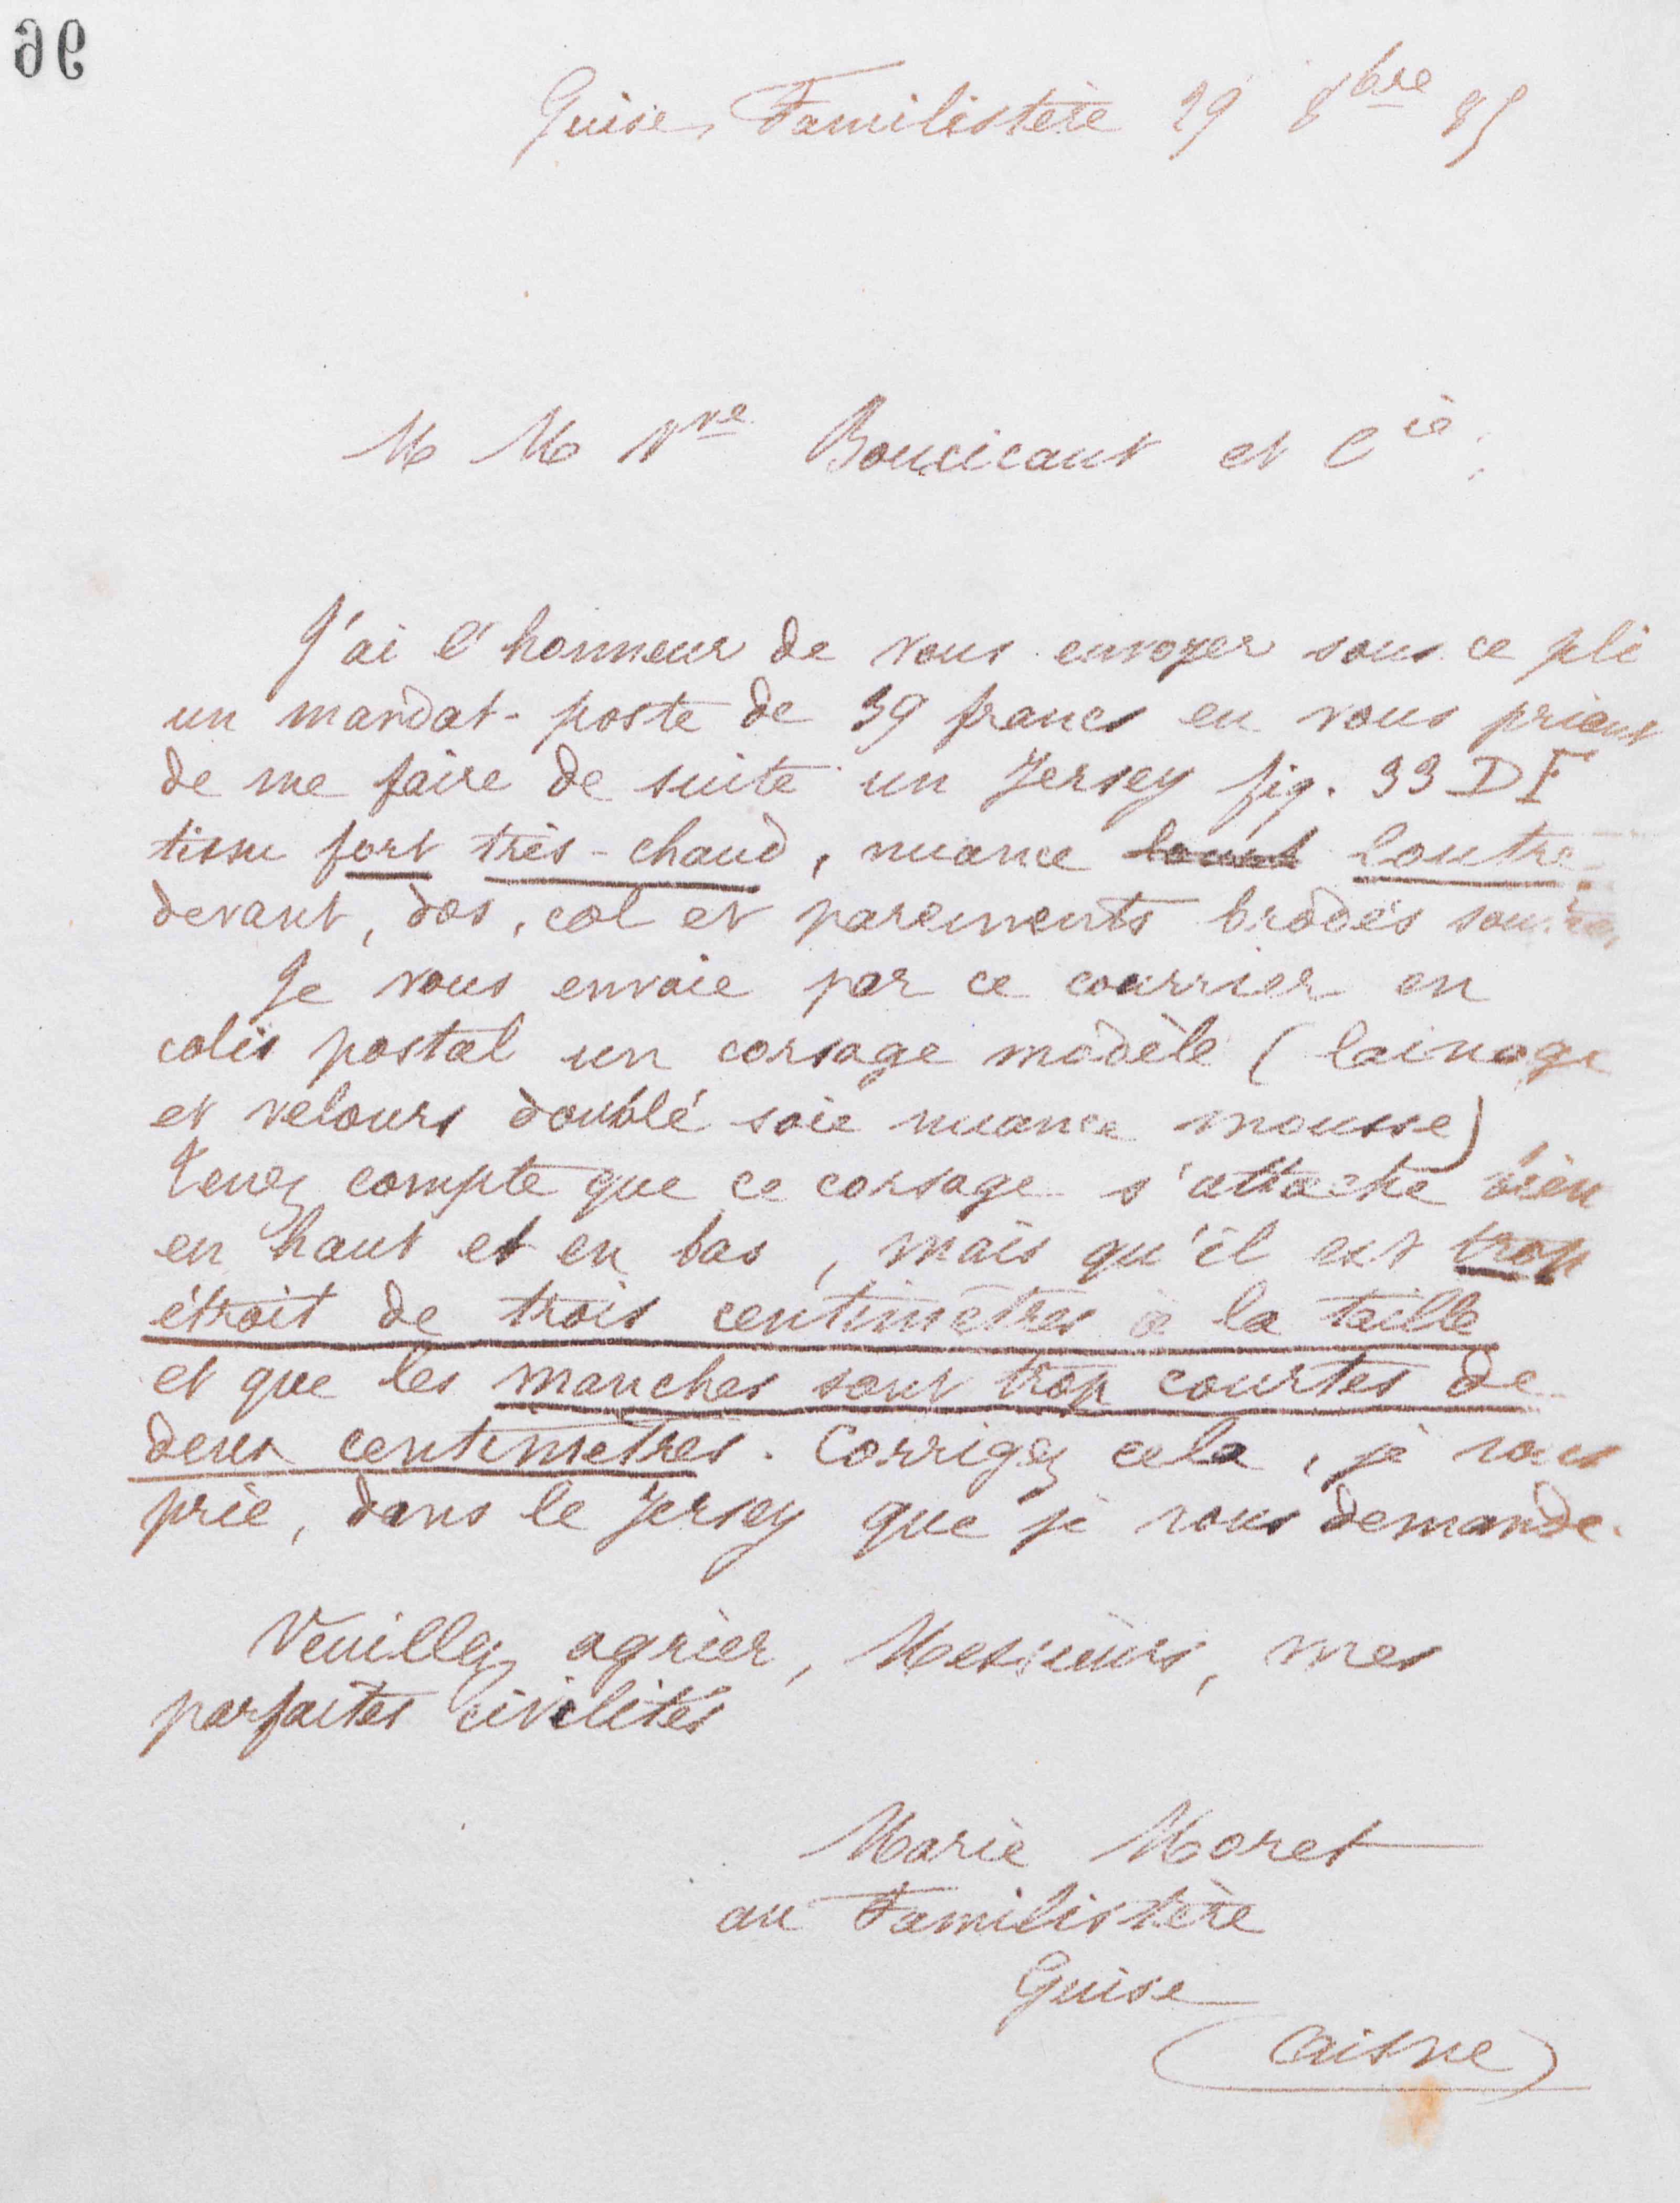 96
Guise, Familistère 29 8bre 85
M M Vve Boucicaut et Cie,
J'ai l'honneur de vous envoyer sous ce pli
un mandat-poste de 39 francs en vous priant
de me faire de suite un Jersey fig. 33 DF
tissu fort très-chaud, nuance loutre
devant, dos, col et parements brodés
Je vous envoie par ce courrier en
colis postal un corsage modèle (lainage
et velours doublé soie nuance mousse)
Tenez compte que ce corsage s'attache bien
en haut et en bas, mais qu'il est trop
étroit de trois centimètres à la taille
et que les manches sont trop courtes de
deux centimètres. Corrigez cela, je vous
prie, dans le Jersey que je vous demande.
Veuillez agréer, Messieurs, mes
parfaites civilités
Marie Moret
au Familistère
Guise
(Aisne)